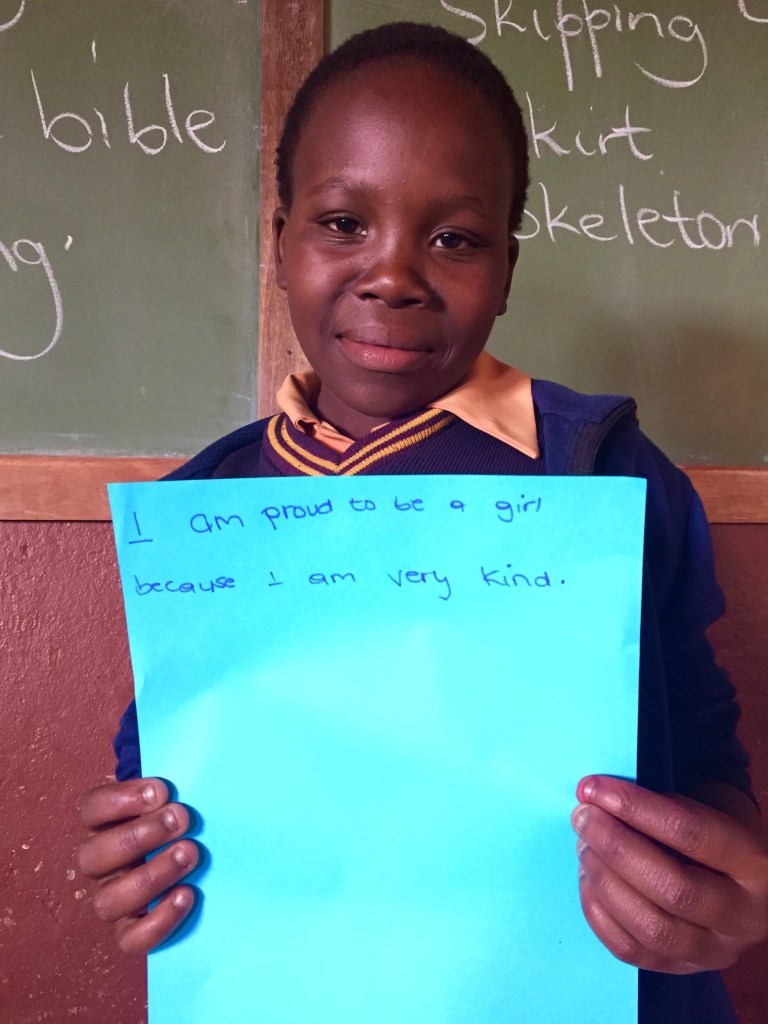 bible
Skipping
kirt
skeleton
I am proud to be a girl
because I am very kind.